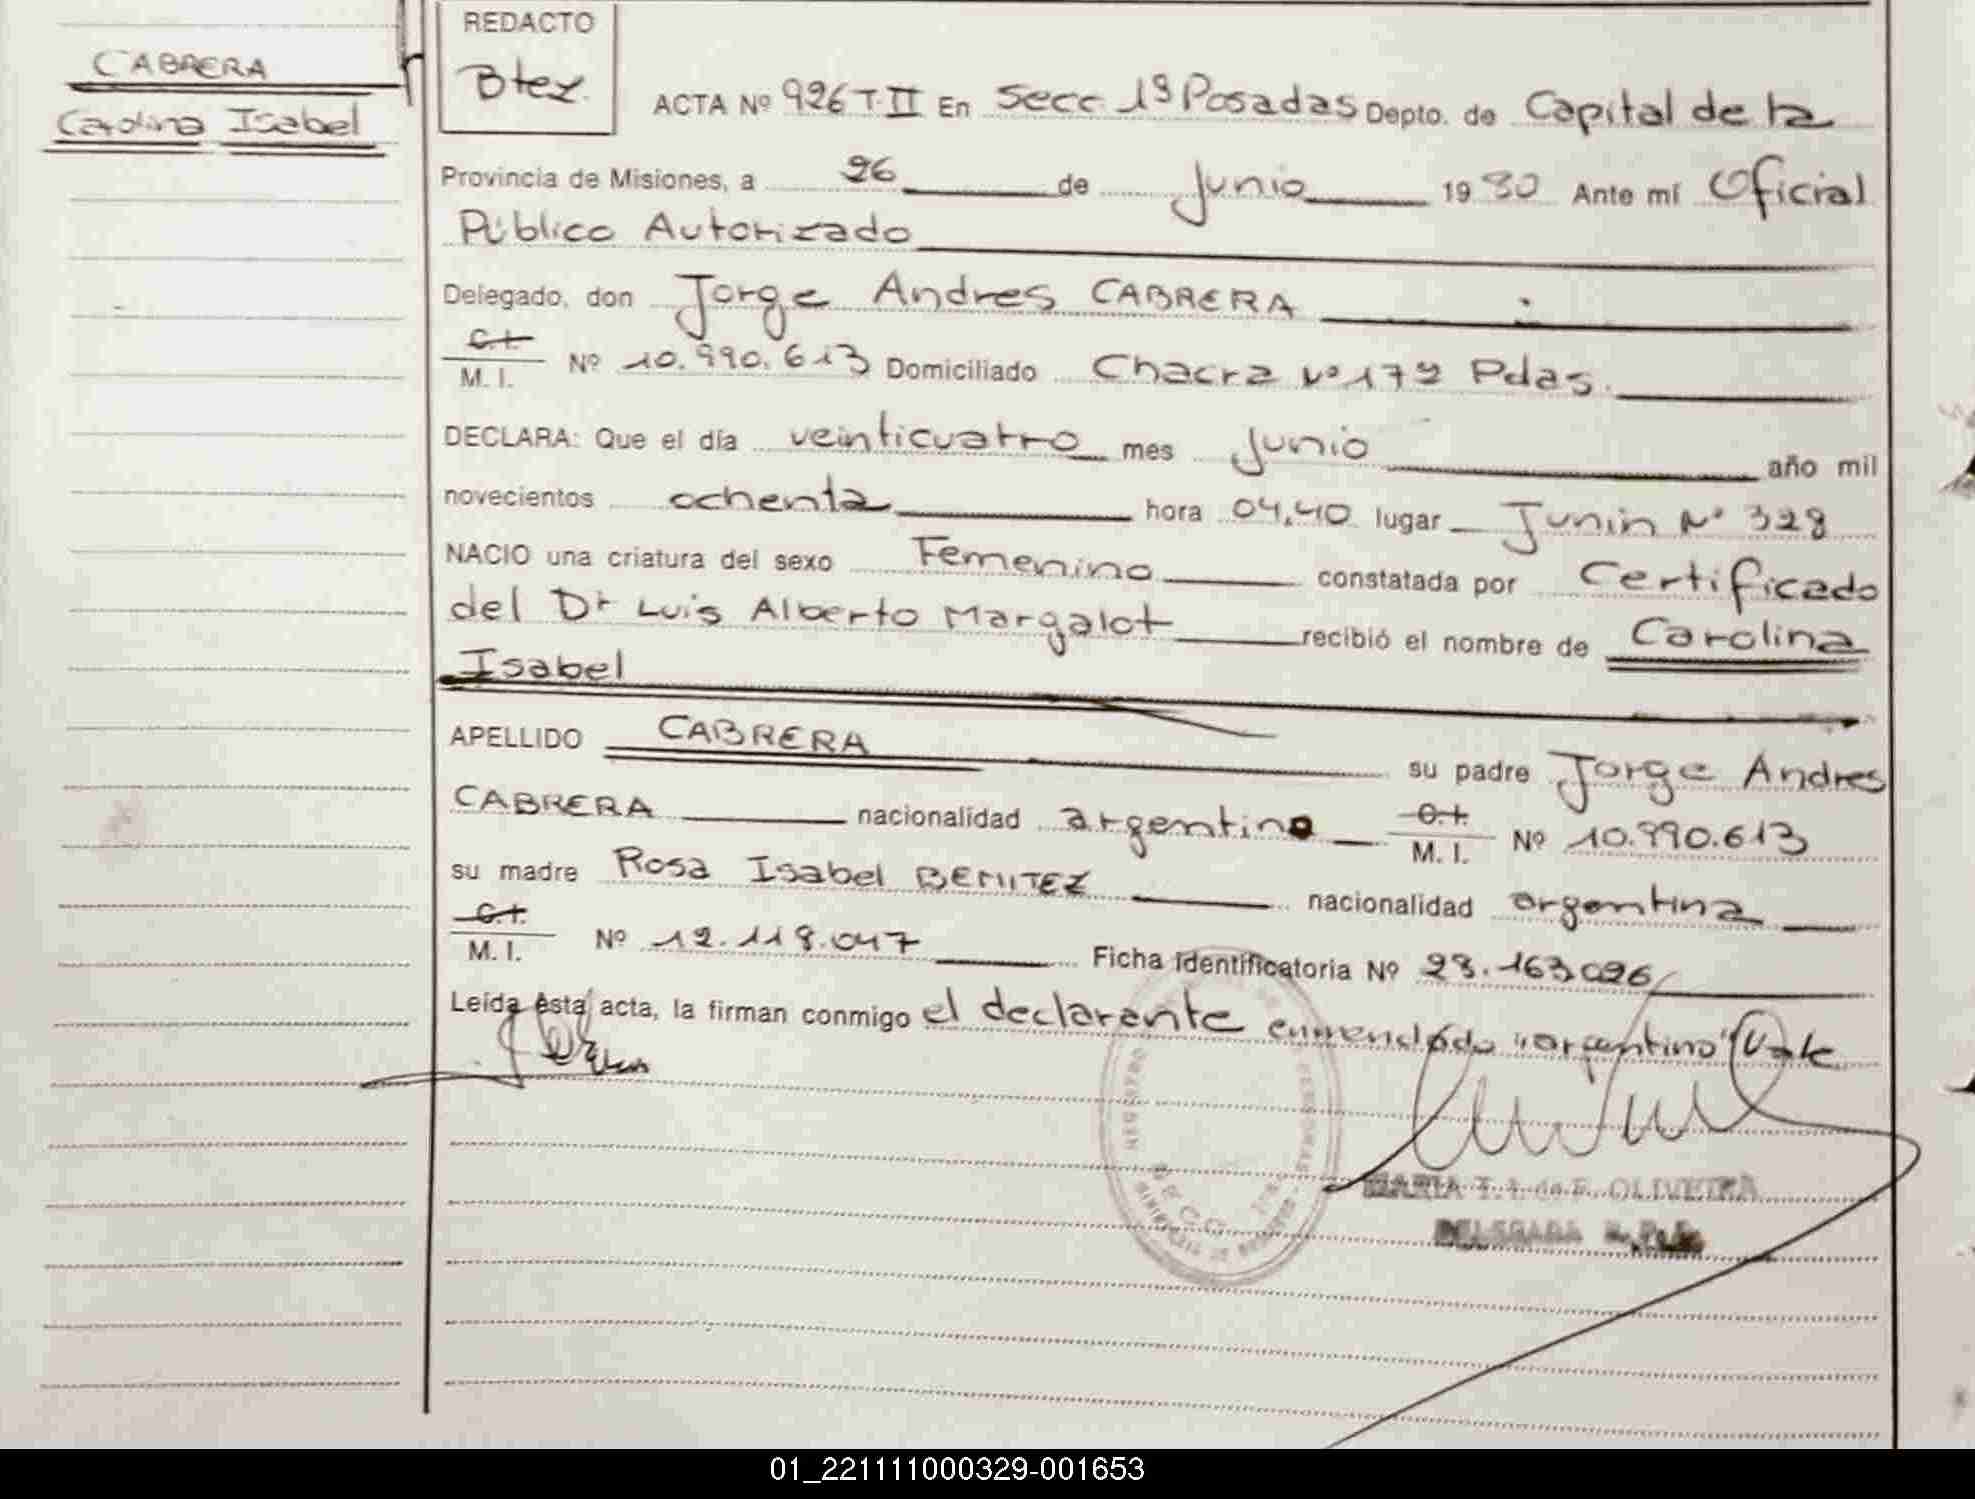 CABRERA
Carolina Isabel
REDACTO
Btez.
ACTA Nº 926 T-II En Secc 1ª Posadas Depto. de Capital de la
Provincia de Misiones, a 26 de Junio 1980 Ante mí Oficial
Público Autorizado
Delegado, don Jorge Andres CABRERA
C.I.
M. I. Nº 10.990.613 Domiciliado Chacra Nº 179 Pdas.
DECLARA: Que el día veinticuatro mes Junio año mil
novecientos ochenta hora 04,40 lugar Junin Nº 328
NACIO una criatura del sexo Femenino constatada por Certificado
del Dr Luis Alberto Margalot recibió el nombre de Carolina
Isabel
APELLIDO CABRERA su padre Jorge Andres
CABRERA nacionalidad argentino C.I.
M. I. Nº 10.990.613
su madre Rosa Isabel BENITEZ nacionalidad argentina
C.I.
M. I. Nº 12.118.047 Ficha Identificatoria Nº 28.163.026
Leída ésta acta, la firman conmigo el declarante enmendado "argentino" Vale
MARIA T. OLIVEIRA
DELEGADA
01_221111000329-001653